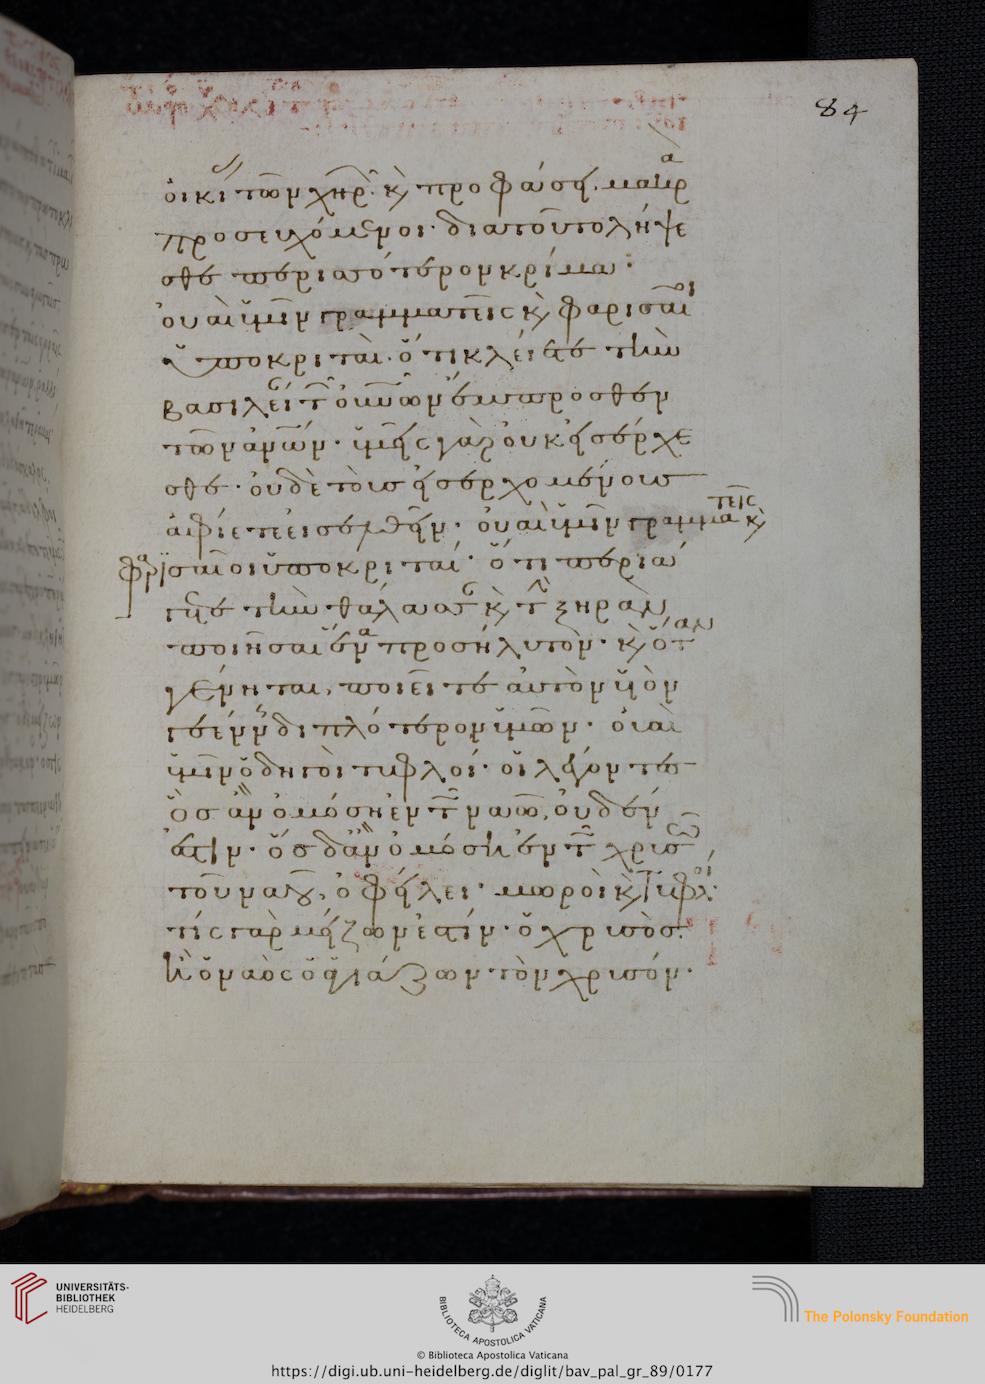 84
οἰκί τῶν χηρ κ προφάσει. μακρ
προσευχόμενοι. διατοῦτο λήψε
σθε περισσότερον κρίμα:
οὐαὶ ὑμῖν γραμματεῖς κ φαρισαῖοι
ὑποκριταὶ. ὅτι κλείετε τὴν
βασιλεί τ οὐνῶν ἔμπροσθεν
τῶν ἀνῶν. ὑμεῖς γὰρ οὐκ εἰσέρχε
σθε. οὐδὲ τοὺς εἰσερχομένους
ἀφίετε εἰσελθεῖν. οὐαὶ ὑμῖν γραμματεῖς κ
φαρισαῖοι ὑποκριταί. ὅτι περιά
γετε τὴν θάλασσ κ τ ξηρὰν
ποιῆσαι ἕνα προσήλυτον. κ ὅταν
γένηται, ποιεῖτε αὐτὸν υἱὸν
γεένν διπλότερον ὑμῶν. οὐαὶ
ὑμῖν ὁδηγοὶ τυφλοί. οἱ λέγοντες
ὃς ἂν ὀμόση ἐν τ ναῶ, οὐδέν
ἐστιν. ὃς δἂν ὀμόση ἐν τ χρυσῶ
τοῦ ναοῦ, ὀφείλει. μωροὶ κ τυφλοί.
τίς γὰρ μείζων ἐστίν. ὁ χρυσὸς.
ἢ ὁ ναὸς ὁ ἁγιάζων τὸν χρυσόν.
UNIVERSITÄTS-
BIBLIOTHEK
HEIDELBERG
BIBLIOTECA APOSTOLICA VATICANA
The Polonsky Foundation
© Biblioteca Apostolica Vaticana
https://digi.ub.uni-heidelberg.de/diglit/bav_pal_gr_89/0177